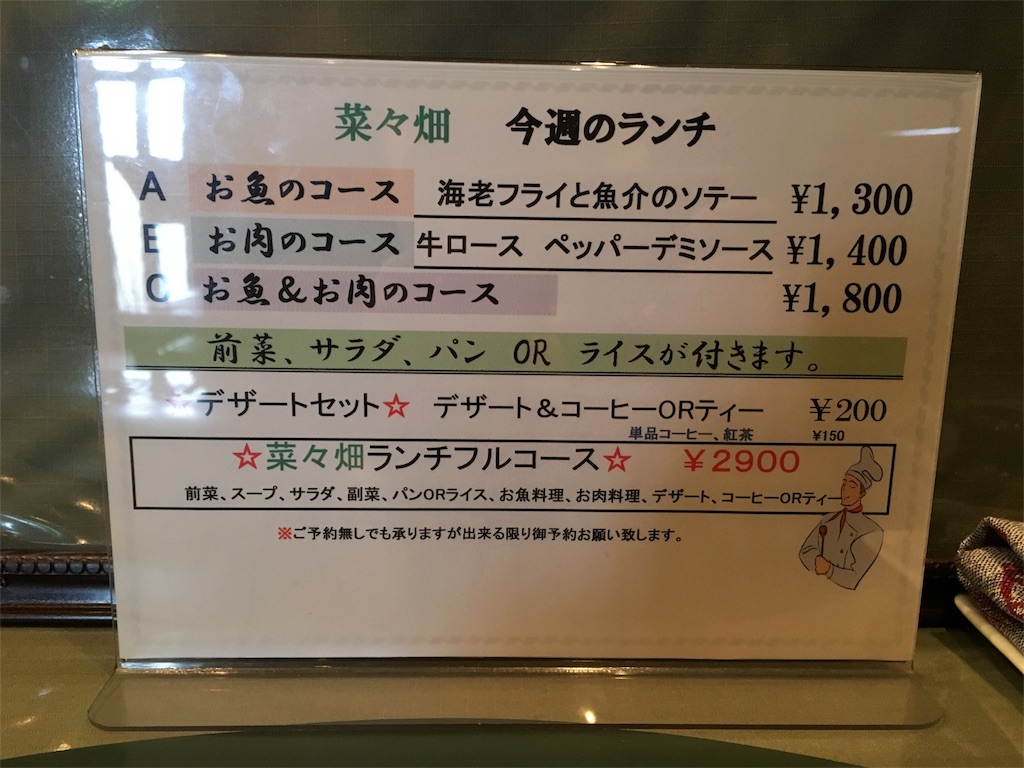 菜々畑 今週のランチ
A お魚のコース 海老フライと魚介のソテー ¥1,300
B お肉のコース 牛ロース ペッパーデミソース ¥1,400
C お魚&お肉のコース ¥1,800
前菜、サラダ、パン OR ライスが付きます。
☆デザートセット☆ デザート&コーヒーORティー ¥200
単品コーヒー、紅茶 ¥150
☆菜々畑ランチフルコース☆ ¥2900
前菜、スープ、サラダ、副菜、パンORライス、お魚料理、お肉料理、デザート、コーヒーORティー
※ご予約無しでも承りますが出来る限り御予約お願い致します。